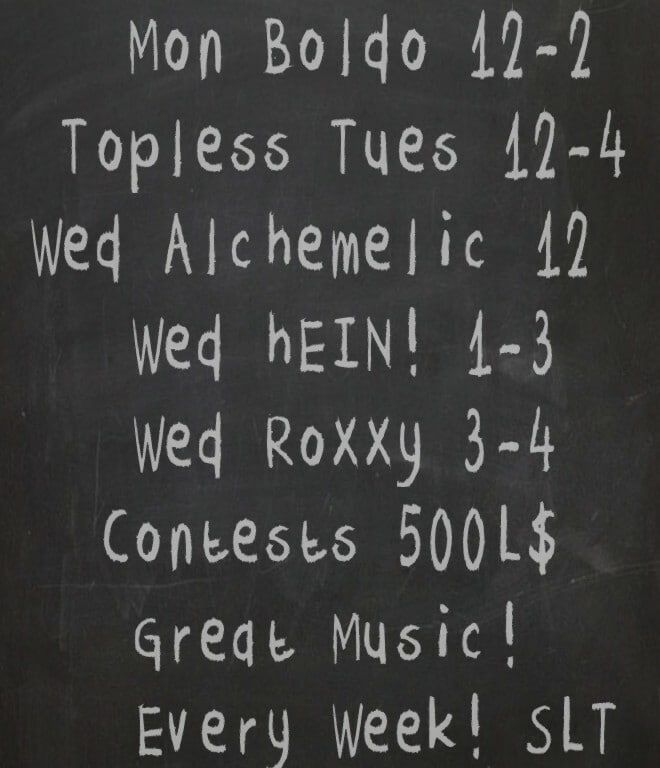 Mon Boldo 12-2
Topless Tues 12-4
Wed Alchemelic 12
Wed hEIN! 1-3
Wed RoXXy 3-4
Contests 500L$
Great Music!
Every Week! SLT